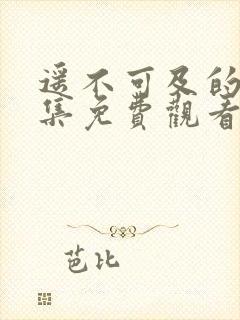 遥不可及的
集免费觀看
芭比